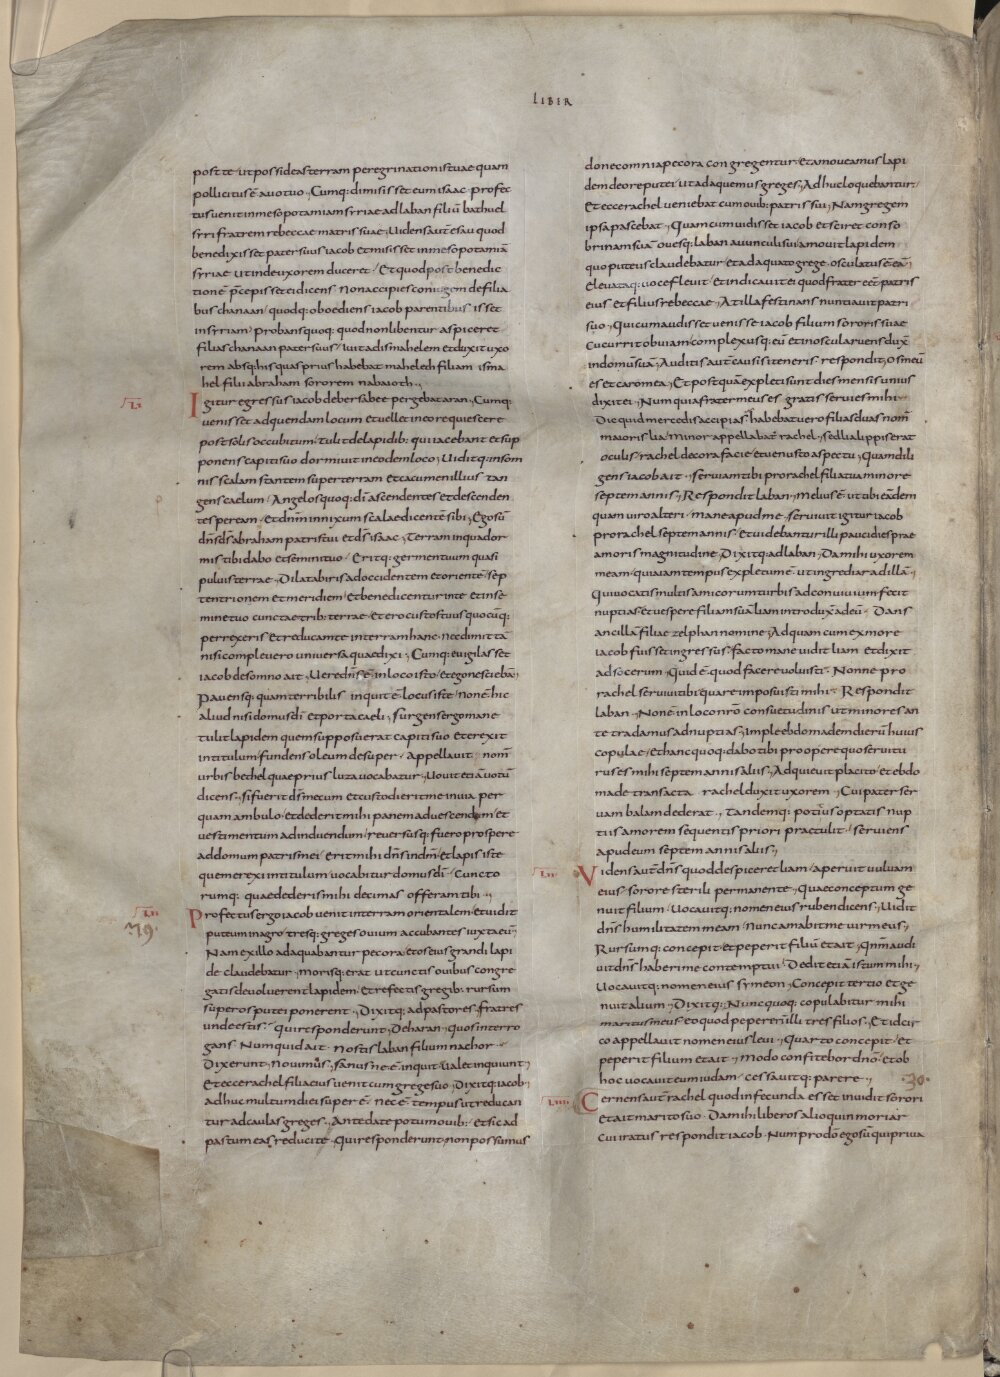 LIBER
post te . ut possideas terram peregrinationis tuae quam
pollicitus ē auo tuo . Cumq; dimisisset eum isaac . profec
tus uenit in mesopotamiam syriae ad laban filiū bathuel
syri fratrem rebeccae matris suae . Uidens aut̄ esau quod
benedixisset pater suus iacob et misisset in mesopotamiā
syriae ut inde uxorem duceret . Et quod post benedic
tionē p̄cepisset ei dicens Non accipies coniugem de filia
bus chanaan . quodq; oboediens iacob parentibus isset
in syriam . probans quoq; quod non libenter aspiceret
filias chanaan pater suus . iuit ad ismahelem et duxit uxo
rem absq; his quas prius habebat maheleth filiam isma
hel filii abraham sororem nabaioth .,
LI
Igitur egressus iacob de bersabee pergebat aran . Cumq;
uenisset ad quendam locum et uellet in eo requiescere
post solis occubitum . tulit de lapidib; qui iacebant et sup
ponens capiti suo dormiuit in eodem loco . Uiditq; in som
nis scalam stantem super terram et cacumen illius tan
gens caelum . Angelos quoq; dī ascendentes et descenden
tes per eam . et dn̄m innixum scalae dicentē sibi . Ego sū
dn̄s ds̄ abraham patris tui et ds̄ isaac . Terram in qua dor
mis tibi dabo et semini tuo . Eritq; germen tuum quasi
puluis terrae . Dilataberis ad occidentem et orientē . sep
tentrionem et meridiem . et benedicentur in te et in se
mine tuo cunctae trib; terrae . et ero custos tuus quocūq;
perrexeris et reducam te in terram hanc . nec dimittā
nisi compleuero uniuersa quae dixi . Cumq; euigilasset
iacob de somno ait . Uere dn̄s ē in loco isto . et ego nesciebā .
Pauensq; quam terribilis inquit ē locus iste . non ē hic
aliud nisi domus dī et porta caeli . Surgens ergo mane
tulit lapidem quem supposuerat capiti suo et erexit
in titulum fundens oleum desuper . appellauit nom̄
urbis bethel quae prius luza uocabatur . Uouit etiā uotū
dicens . si fuerit ds̄ mecum et custodierit me in uia per
quam ambulo . et dederit mihi panem ad uescendum et
uestimentum ad induendum . reuersusq; fuero prospere
ad domum patris mei . erit mihi dn̄s in dm̄ et lapis iste
quem erexi in titulum uocabitur domus dī . Cuncto
rumq; quae dederis mihi decimas offeram tibi .,
LII
29.
Profectus ergo iacob uenit in terram orientalem et uidit
puteum in agro . tresq; greges ouium accubantes iuxta eū .
Nam ex illo adaquabantur pecora . et os eius grandi lapi
de claudebatur . morisq; erat ut cunctis ouibus congre
gatis deuoluerent lapidem . et refectis gregib; rursum
super os putei ponerent . Dixitq; ad pastores . fratres
unde estis . qui responderunt . De haran . quos interro
gans Numquid ait nostis laban filium nachor
Dixerunt . Nouimus . sanus ne ē inquit . Ualet inquiunt
et ecce rachel filia eius uenit cum grege suo . Dixitq; iacob
adhuc multum diei super ē . nec ē tempus ut reducan
tur ad caulas greges . Ante date potum ouib; et sic ad
pastum eas reducite . Qui responderunt . non possumus
donec omnia pecora congregentur et amoueamus lapi
dem de ore putei . ut adaquemus greges . Adhuc loquebantur
et ecce rachel ueniebat cum ouib; patris sui . Nam gregem
ipsa pascebat . Quam cum uidisset iacob et sciret conso
brinam suā ouesq; laban auunculi sui amouit lapidem
quo puteus claudebatur et adaquato grege osculatus ē eā .
eleuataq; uoce fleuit et indicauit ei quod frater eēt patris
eius et filius rebeccae . At illa festinans nuntiauit patri
suo . Qui cum audisset uenisse iacob filium sororis suae
cucurrit obuiam . complexusq; eū et in oscula ruens dux̄
in domum suā . Auditis aut̄ causis itineris respondit . os meū
es et caro mea . Et postquā expleti sunt dies mensis unius
dixit ei . Num quia frater meus es gratis seruies mihi .
Dic quid mercedis accipias . habebat uero filias duas nom̄
maioris lia . minor appellabat̄ rachel . sed lia lippis erat
oculis rachel decora facie et uenusto aspectu . Quam dili
gens iacob ait . seruiam tibi pro rachel filia tua minore
septem annis . Respondit laban . melius ē ut tibi eādem
quam uiro alteri . mane apud me . seruiuit igitur iacob
pro rachel septem annis . et uidebantur illi pauci dies prae
amoris magnitudine . Dixitq; ad laban . Da mihi uxorem
meam . quia iam tempus expletum ē . ut ingrediar ad illā .
Qui uocatis multis amicorum turbis ad conuiuium fecit
nuptias et uespere filiam suā liam introdux̄ ad eū . Dans
ancillā filiae zelphan nomine . Ad quam cum ex more
iacob fuisset ingressus . facto mane uidit liam et dixit
ad socerum . Quid ē quod facere uoluisti . Nonne pro
rachel seruiui tibi quare imposuisti mihi . Respondit
laban . Non ē in loco nr̄o consuetudinis ut minores an
te tradamus ad nuptias . imple ebdomadem dierū huius
copulae . et hanc quoq; dabo tibi pro opere quo seruitu
rus es mihi septem annis aliis . Adquieuit placito et ebdo
made transacta rachel duxit uxorem . Cui pater ser
uam balam dederat . Tandemq; potitus optatis nup
tiis amorem sequentis priori praetulit . seruiens
apud eum septem annis aliis .
LIII
Uidens aut̄ dn̄s quod despiceret liam . aperuit uuluam
eius sorore sterili permanente . Quae conceptum ge
nuit filium . Uocauitq; nomen eius ruben dicens . Uidit
dn̄s humilitatem meam . Nunc amabit me uir meus .
Rursumq; concepit et peperit filiū et ait . Qnm̄ audi
uit dn̄s haberi me contemptui . Dedit etiā istum mihi .
Uocauitq; nomen eius symeon . Concepit tertio et ge
nuit alium . Dixitq; . Nunc quoq; copulabitur mihi
maritus meus eo quod pepererim illi tres filios . Et idcir
co appellauit nomen eius leui . Quarto concepit . et
peperit filium et ait . Modo confitebor dn̄o . et ob
hoc uocauit eum iudam . cessauitq; parere .
30.
LIIII
Cernens aut̄ rachel quod infecunda esset inuidit sorori
et ait marito suo . Da mihi liberos alioquin moriar
cui iratus respondit iacob . Num pro dō ego sū qui priua